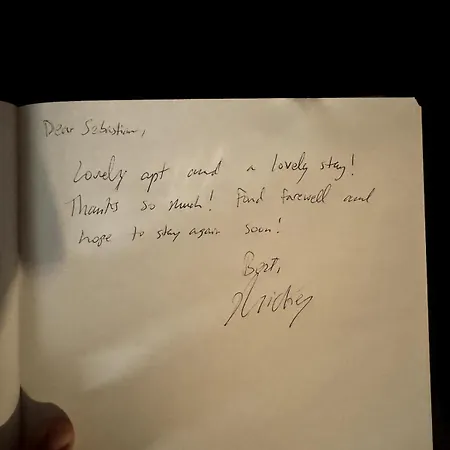 Dear Sebastian,
Lovely apt and a lovely stay!
Thanks so much! Fond farewell and
hope to stay again soon!
Best,